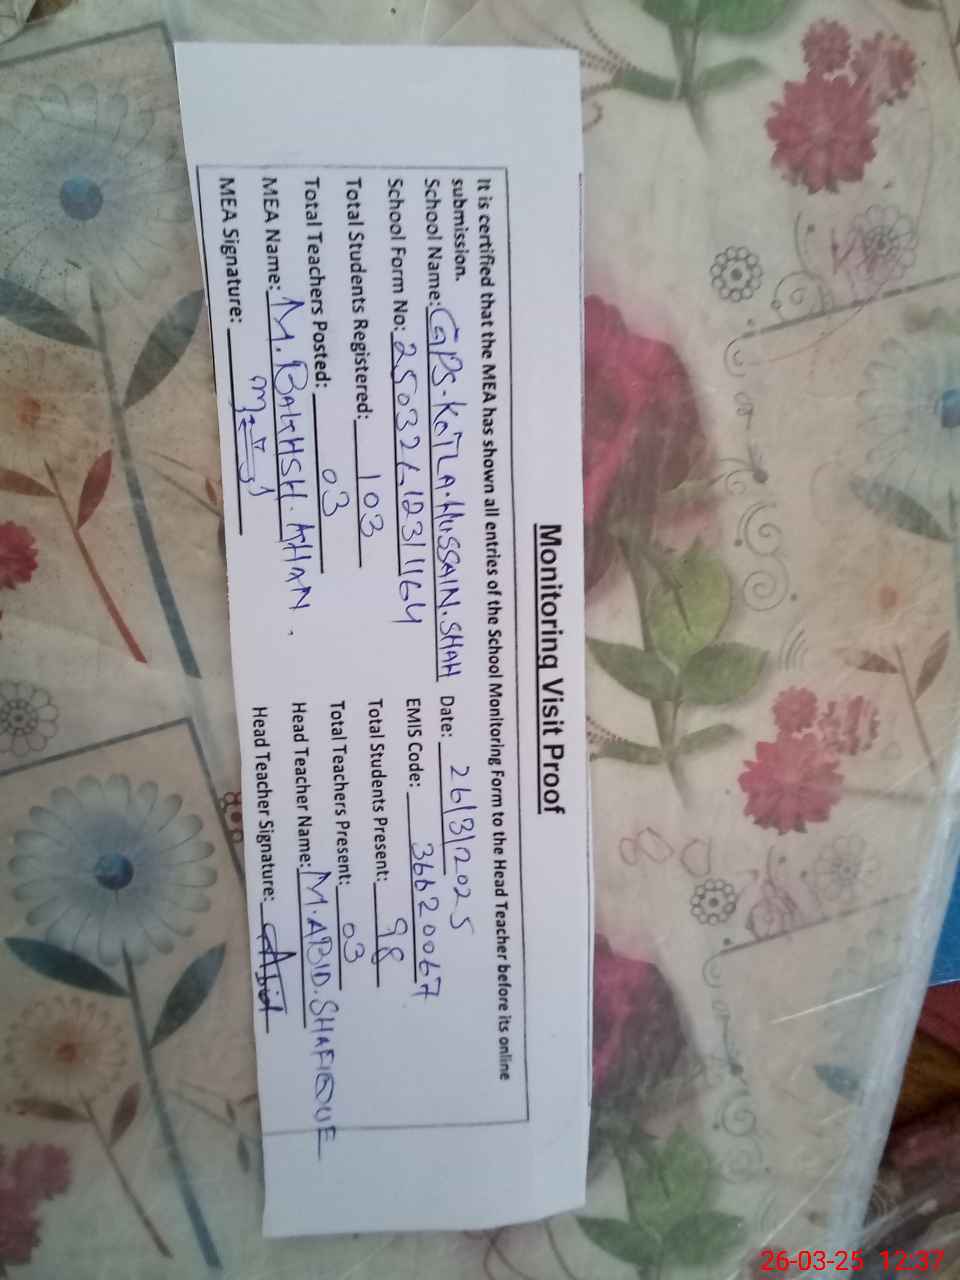 Monitoring Visit Proof
It is certified that the MEA has shown all entries of the School Monitoring Form to the Head Teacher before its online
submission.
School Name: GPS. KOTLA. HUSSAIN. SHAH Date: 26/3/2025
School Form No: 25032612311164 EMIS Code: 36620067
Total Students Registered: 103 Total Students Present: 98
Total Teachers Posted: 03 Total Teachers Present: 03
MEA Name: M. BAKHSH. AHAN. Head Teacher Name: M. ABID. SHAFIQUE
MEA Signature: Head Teacher Signature: Abid
26-03-25 12:37